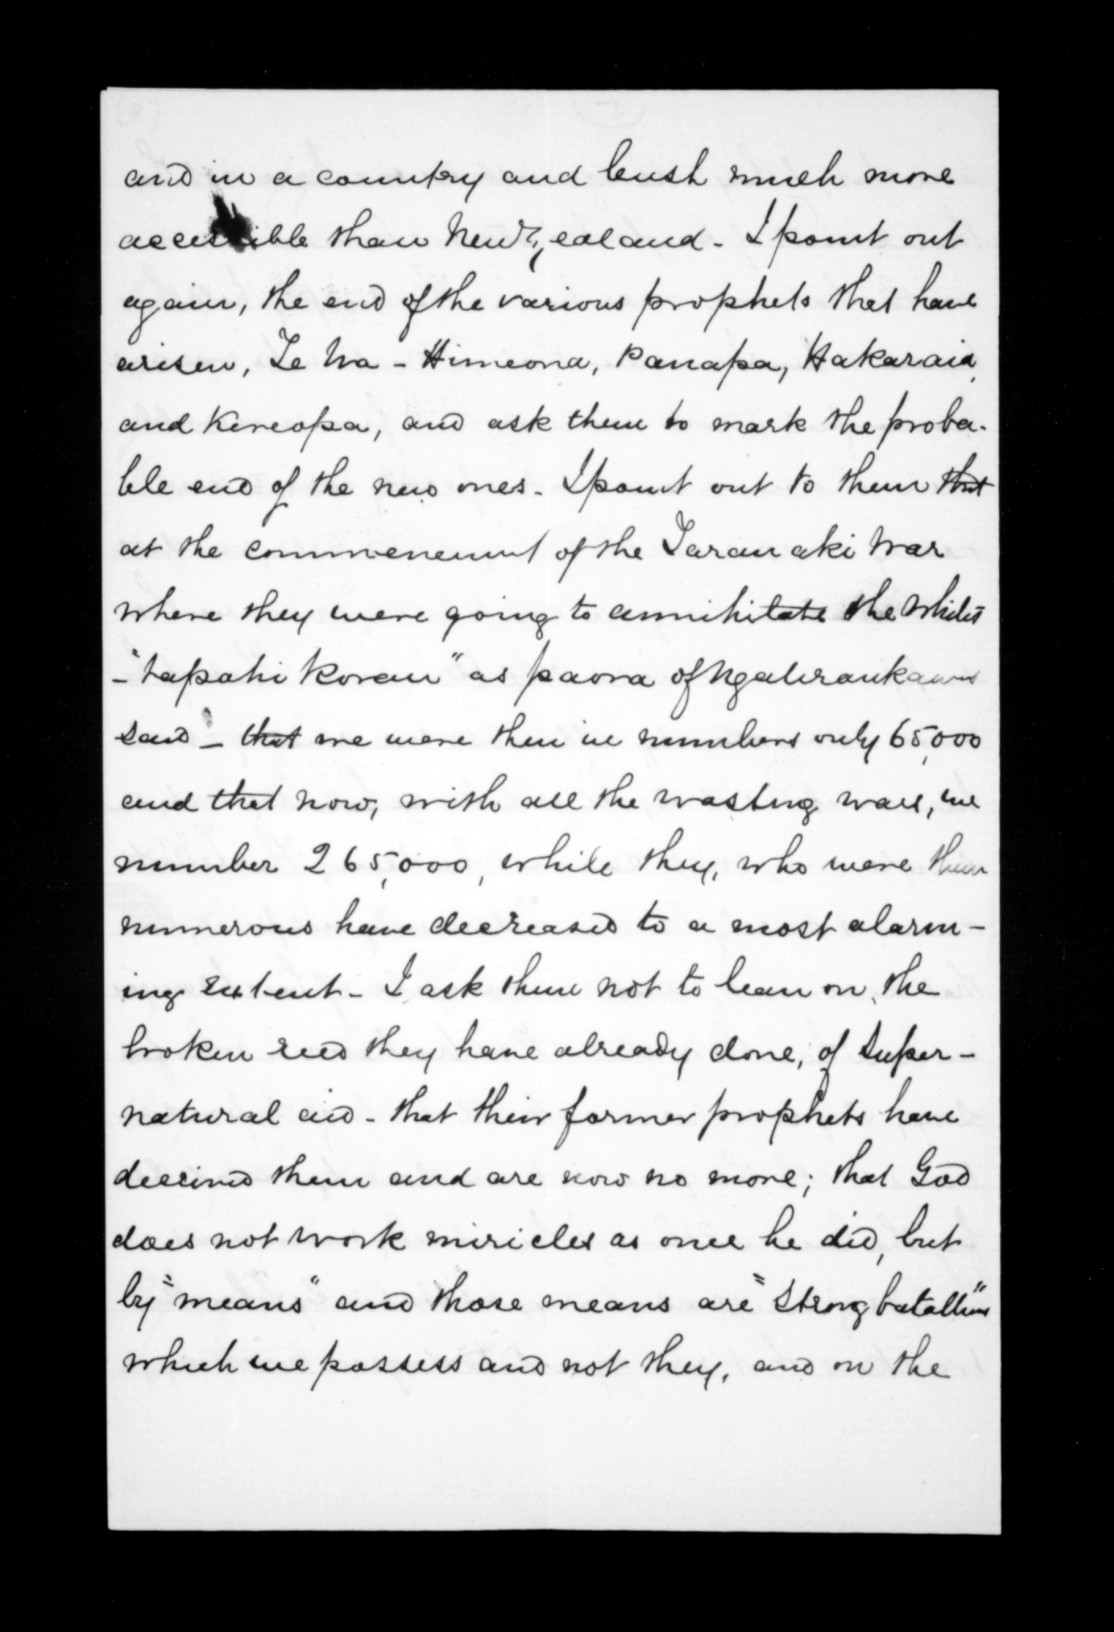 and in a country and bush much more
accessible than New Zealand - I point out
again, the end of the various prophets that have
arisen, Te Ua - Himeona, Panapa, Hakaraia,
and Kereopa, and ask them to mark the proba-
ble end of the new ones - I point out to them that
at the commencement of the Taranaki War
where they were going to annihilate the Whites
- "tapahi Koreau" as paora of
said - that we were then in numbers only 65,000
and that now, with all the wasting wars, we
number 265,000, while they, who were then
numerous have decreased to a most alarm-
ing extent - I ask them not to lean on, the
broken reed they have already done, of super-
natural aid - that their former prophets have
deceived them and are now no more; that God
does not work miricles as once he did, but
by "means" and those means are "Strong batallions"
which we possess and not they, and on the